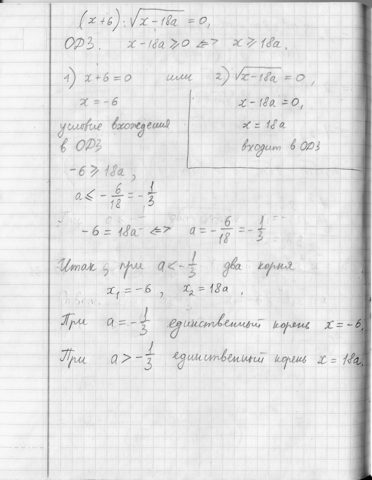 (x+6)·√(x-18a) = 0,
ОДЗ. x-18a ≥ 0 <=> x ≥ 18a.
1) x+6=0 или 2) √(x-18a) = 0,
x = -6
x-18a = 0,
x = 18a
входит в ОДЗ
условие вхождения
в ОДЗ
-6 ≥ 18a,
a ≤ -6/18 = -1/3
-6 = 18a <=> a = -6/18 = -1/3
Итак, при a < -1/3 два корня
x₁ = -6, x₂ = 18a.
При a = -1/3 единственный корень x = -6.
При a > -1/3 единственный корень x = 18a.